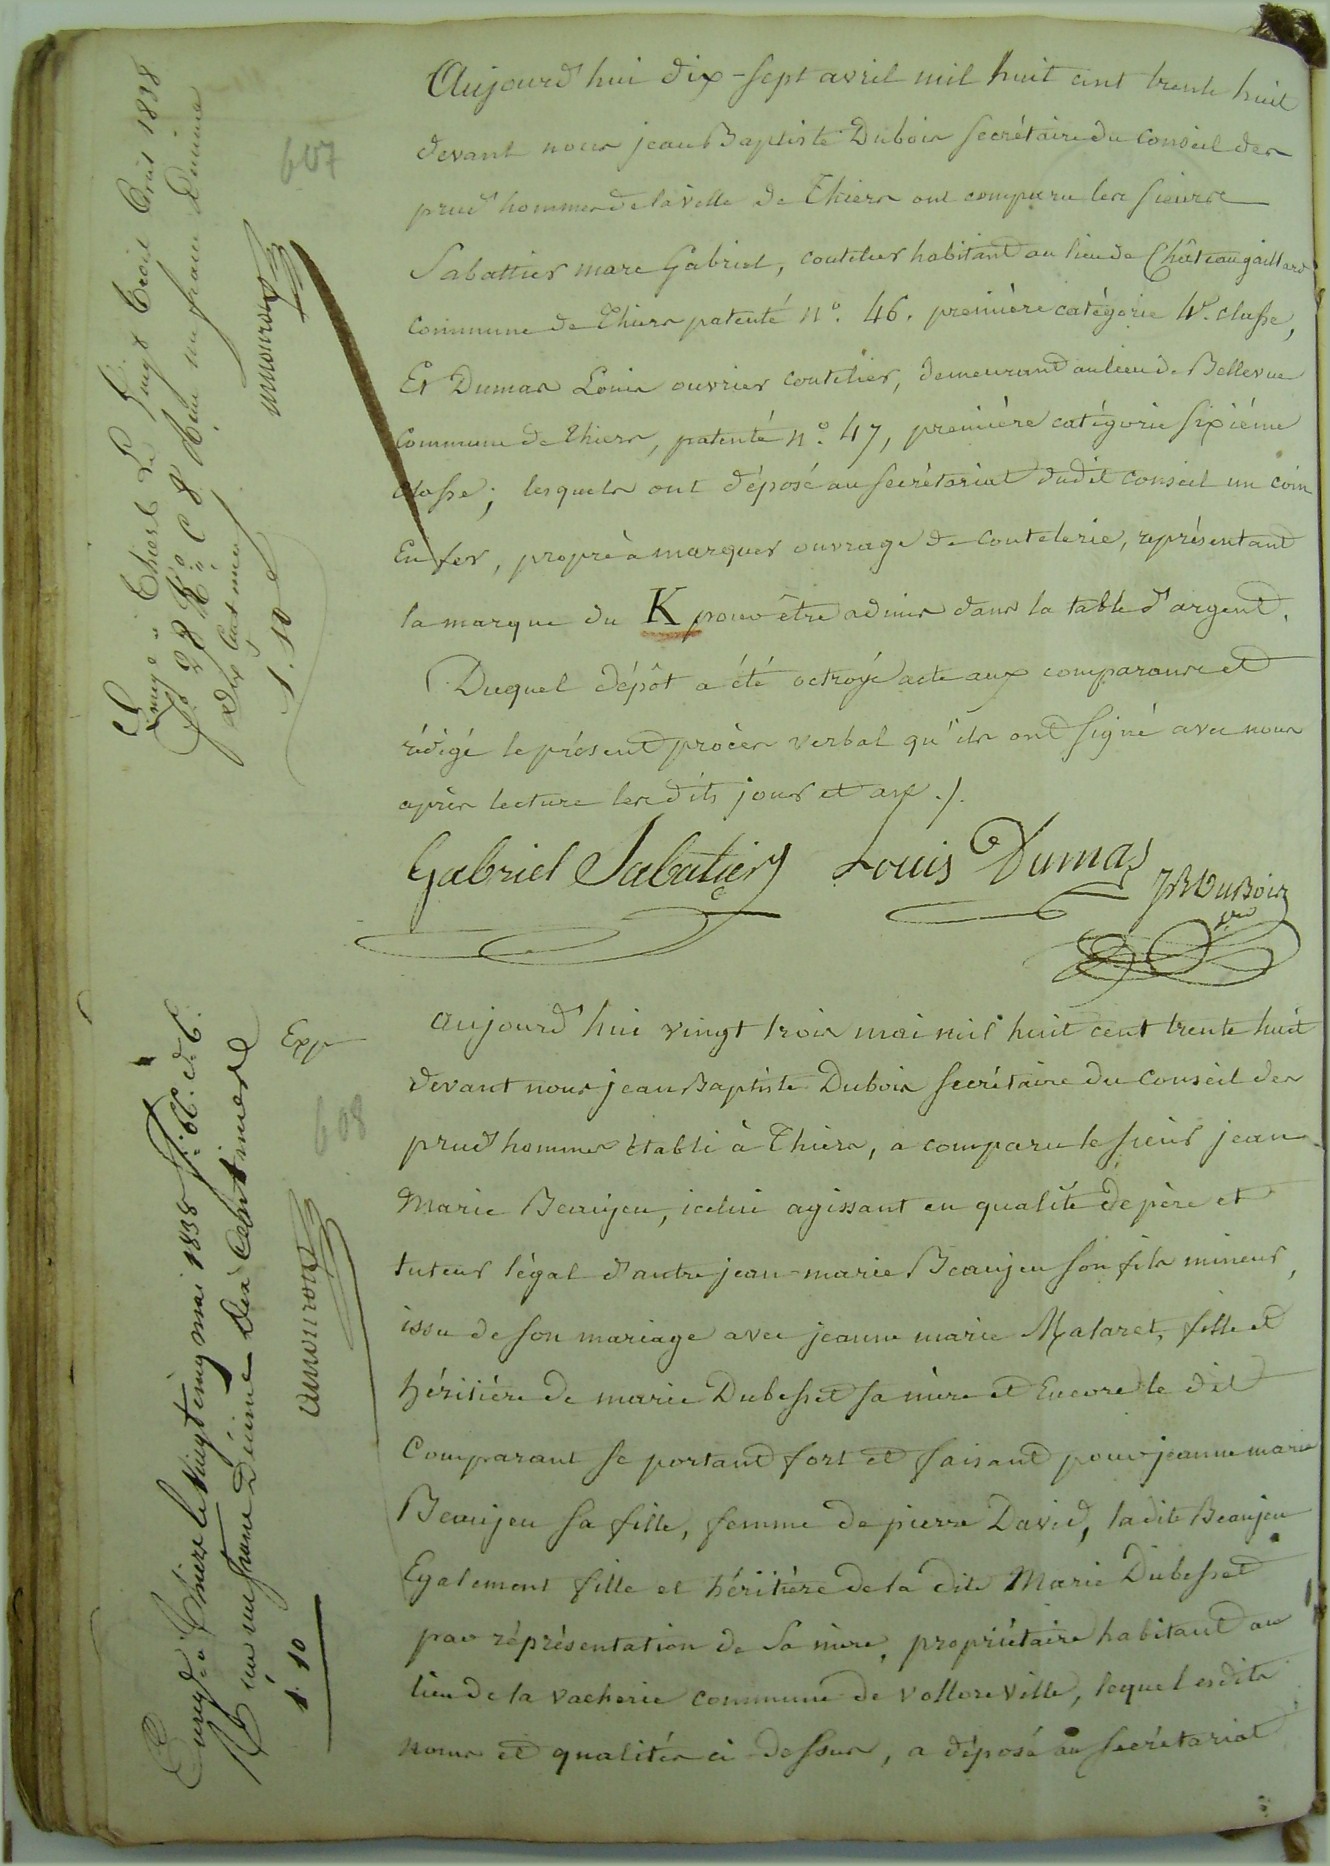 607
Aujourd'hui dix-sept avril mil huit cent trente huit
devant nous jean Baptiste Dubois secrétaire du conseil des
prud'hommes de la ville de Thiers ont comparu les sieurs
Sabattier marc Gabriel, coutelier habitant au lieu de Châteaugaillard
commune de Thiers patenté n°. 46. première catégorie 4e. classe,
Et Dumas Louis ouvrier coutelier, demeurant au lieu de Bellevue
commune de Thiers, patenté n°. 47, première catégorie sixième
classe; lesquels ont déposé au secrétariat dudit conseil un coin
en fer, propre à marquer ouvrage de coutelerie, représentant
la marque du K pour être admis dans la table d'argent.
Duquel dépôt a été octroyé acte aux comparants et
rédigé le présent procès verbal qu'ils ont signé avec nous
après lecture les dits jour et an ./.
Gabriel Sabatier Louis Dumas JB DuBois
Enregé à Thiers Le Vingt trois avril 1838
f° 28 R° C 8 Reçu un franc Décime
dix centimes
1.10
amouroux
Exp
608
aujourd'hui vingt trois mai mil huit cent trente huit
devant nous jean Baptiste Dubois secrétaire du Conseil des
prud'hommes établi à Thiers, a comparu le sieur jean
Marie Beaujeu, icelui agissant en qualité de père et
tuteur légal d'autre jean-marie Beaujeu son fils mineur,
issu de son mariage avec jeanne marie Mataret, fille et
héritière de marie Dubesset sa mère et Encore le dit
Comparant se portant fort et faisant pour jeanne marie
Beaujeu sa fille, femme de pierre David, ladite Beaujeu
Egalement fille et héritière de la dite Marie Dubesset
par réprésentation de sa mère, propriétaire habitant au
lieu de la vacherie commune de volloreville, lequel esdits
noms et qualités ci dessus, a déposé au secrétariat
Enregé à Thiers le vingt cinq mai 1838
Reçu un franc Décime dix centimes
1.10
amouroux